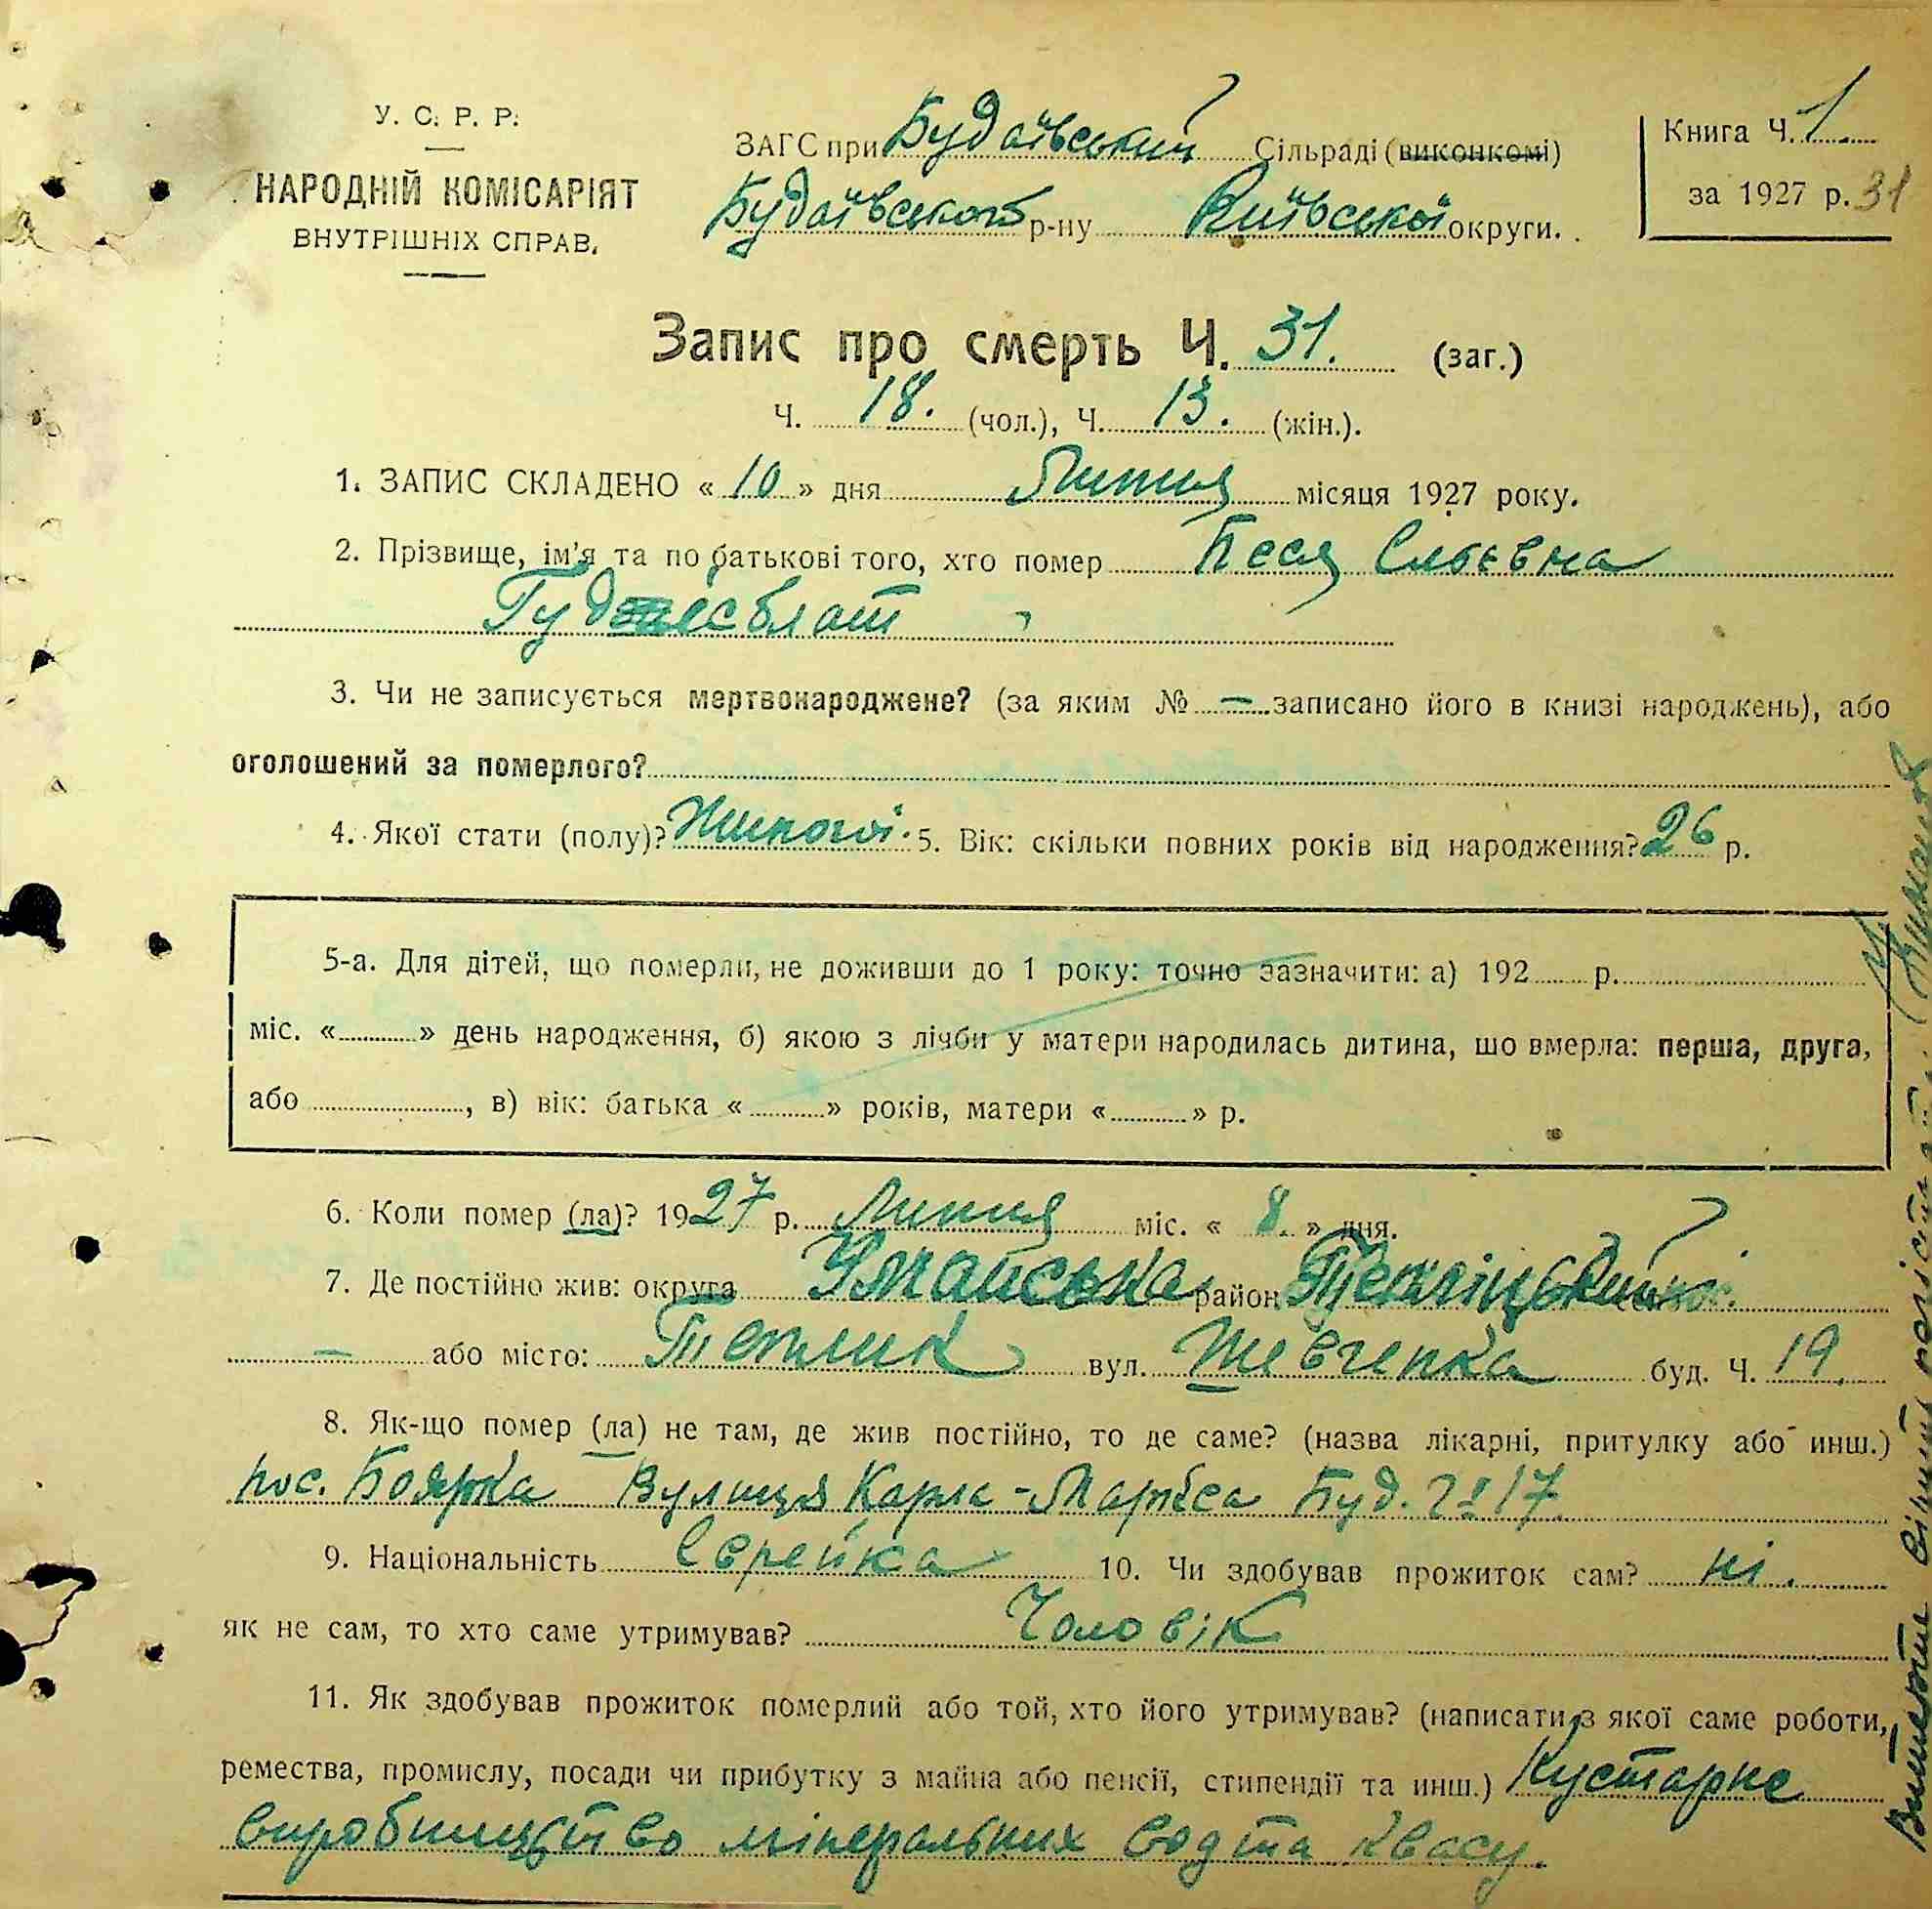 У. С. Р. Р.
НАРОДНІЙ КОМІСАРІЯТ
ВНУТРІШНІХ СПРАВ.
ЗАГС при Будаївський Сільраді (виконкомі)
Будаївського р-ну Київської округи.
Книга Ч. 1
за 1927 р. 31
Запис про смерть Ч. 31. (заг.)
Ч. 18. (чол.), Ч. 13. (жін.).
1. ЗАПИС СКЛАДЕНО « 10 » дня Липня місяця 1927 року.
2. Прізвище, ім'я та по батькові того, хто помер Беся
3. Чи не записується мертвонароджене? (за яким № — записано його в книзі народжень), або
оголошений за померлого?
4. Якої стати (полу)? Жиночої. 5. Вік: скільки повних років від народження? 26 р.
5-а. Для дітей, що померли, не доживши до 1 року: точно зазначити: а) 192 р.
міс. « » день народження, б) якою з лічби у матери народилась дитина, що вмерла: перша, друга,
або , в) вік: батька « » років, матери « » р.
6. Коли помер (ла)? 1927 р. Липня міс. « 8. » дня.
7. Де постійно жив: округа Уманська район
— або місто: Теплик вул. Шевченка буд. Ч. 19.
8. Як-що помер (ла) не там, де жив постійно, то де саме? (назва лікарні, притулку або инш.)
пос. Боярка Вулиця Карла-Маркса Буд. 17.
9. Національність Єврейка 10. Чи здобував прожиток сам? ні.
як не сам, то хто саме утримував? Чоловік
11. Як здобував прожиток померлий або той, хто його утримував? (написати, з якої саме роботи,
ремества, промислу, посади чи прибутку з майна або пенсії, стипендії та инш.) Кустарне
виробництво мінеральних вод та квасу.